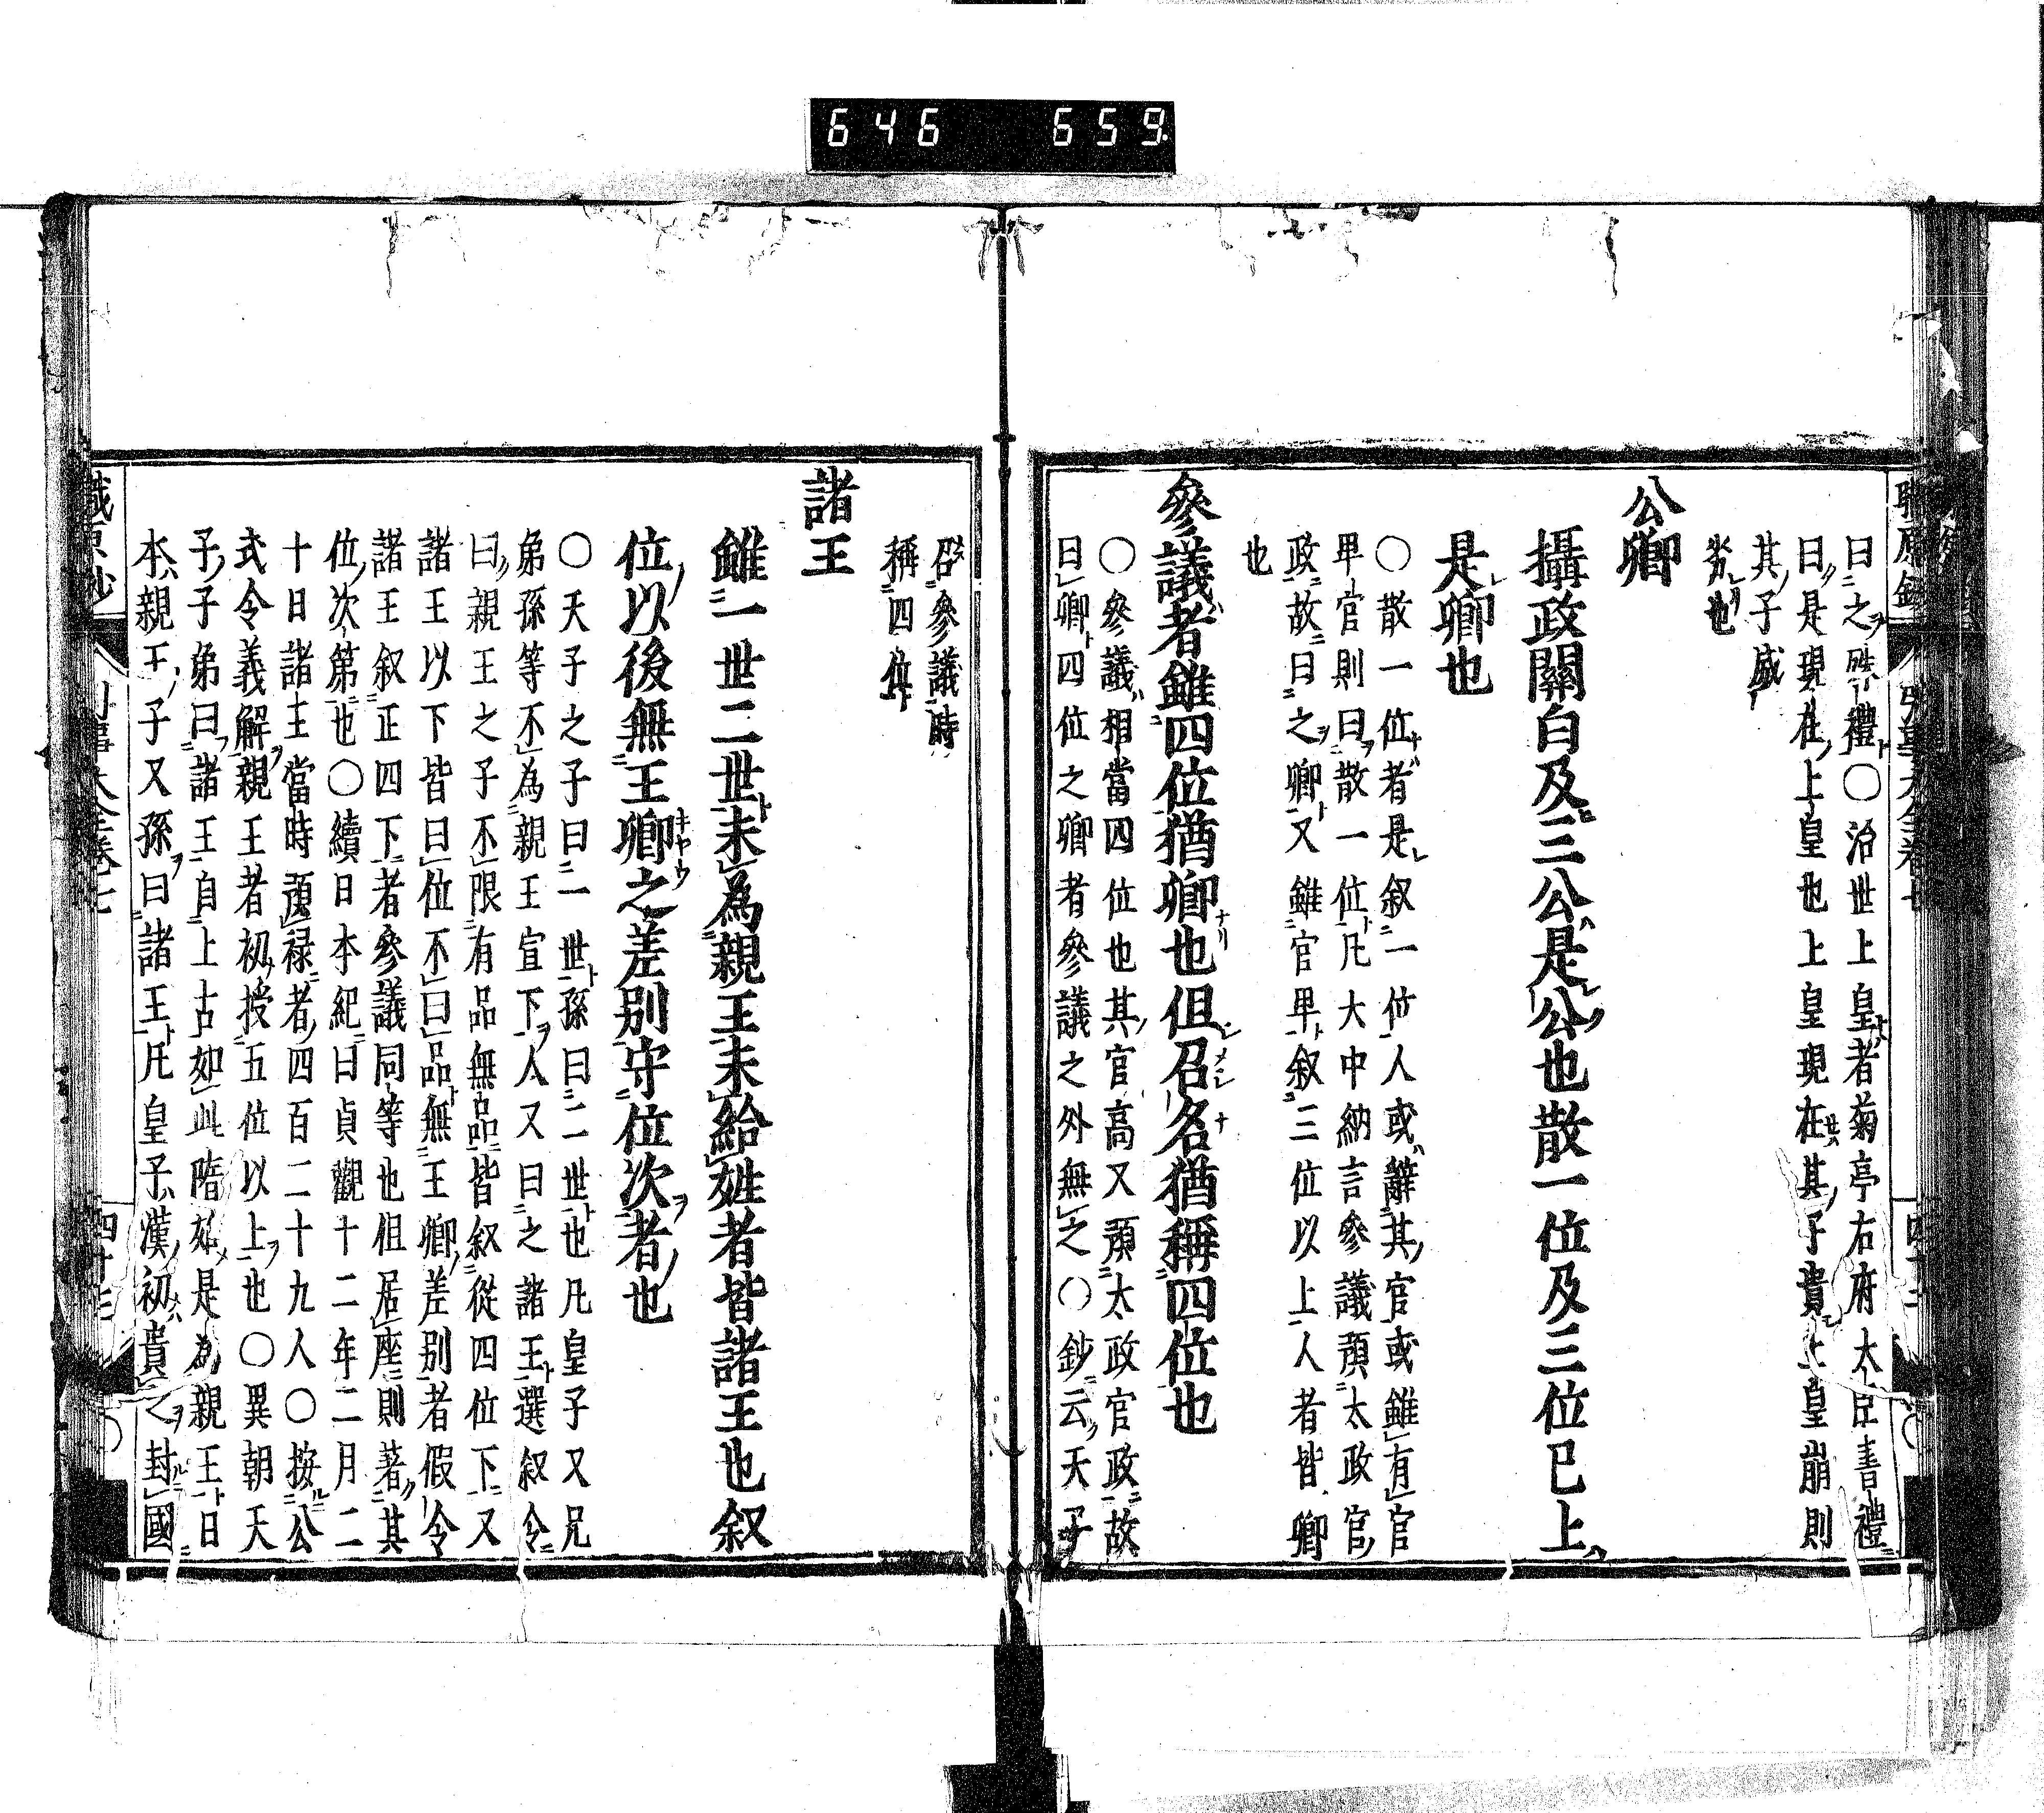 646 659
曰之殊禮〇治世上皇者菊亭右府太臣書禮
曰是現在上皇也上皇現在其子貴上皇崩則
其子盛
劣也
公卿
攝政關白及三公是公也散一位及三位已上
是卿也
〇散一位者是叙一位人或辭其官或雖有官
卑官則曰散一位凡大中納言參議預太政官
政故曰之卿又雖官卑叙三位以上人者皆卿
也
參議者雖四位猶卿也但召名猶稱四位也
〇參議相當四位也其官高又預太政官政故
曰卿四位之卿者參議之外無之〇鈔云天子
召參議時
稱四位
諸王
雖一世二世未為親王未給姓者皆諸王也叙
位以後無王卿之差別守位次者也
〇天子之子曰一世孫曰二世也凡皇子又兄
弟孫等不為親王宣下人又曰之諸王選叙令
曰親王之子不限有品無品皆叙從四位下又
諸王以下皆曰位不曰品無王卿差別者假令
諸王叙正四下者參議同等也但居座則著其
位次第也〇續日本紀曰貞觀十二年二月二
十日諸王當時預祿者四百二十九人〇按公
式令義解親王者初授五位以上也〇異朝天
子子弟曰諸王自上古如此隋始是為親王日
本親王子又孫曰諸王凡皇子漢初貴之封國
職原鈔 引事大全卷七 四十三